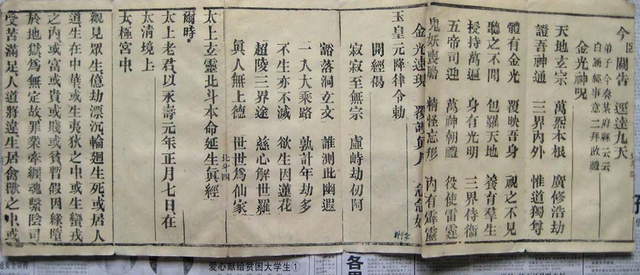 今 臣 關告 逕達九天
弟子今奏某府縣云云
金光神咒
天地玄宗 萬炁本根 廣修浩劫
證吾神通 三界內外 惟道獨尊
體有金光 覆映吾身 視之不見
聽之不聞 包羅天地 養育羣生
授持萬遍 身有光明 三界侍衛
五帝司迎 萬神朝禮 役使雷霆
鬼妖喪膽 精怪忘形 內有霹靂
金光速現 覆護真人 急急如
玉皇元降律令勅
開經偈
寂寂至無宗 虛峙劫仞阿
豁落洞玄文 誰測此幽遐
一入大乘路 孰計年劫多
不生亦不滅 欲生因蓮花
超陵三界途 慈心解世羅
眞人無上德 世世爲仙家
北斗 四
太上玄靈北斗本命延生眞經
爾時
太上老君以永壽元年正月七日在
太清境上
太極宮中
觀見衆生億劫漂沉輪迴生死或居人
道生在中華或生夷狄之中或生蠻戎
之內或富或貴或賤或貧暫假因緣墮
於地獄爲無定故罪業牽纏魂繫陰司
受苦滿足人道將違生居禽獸之中或
爱心献给贫困大学生①